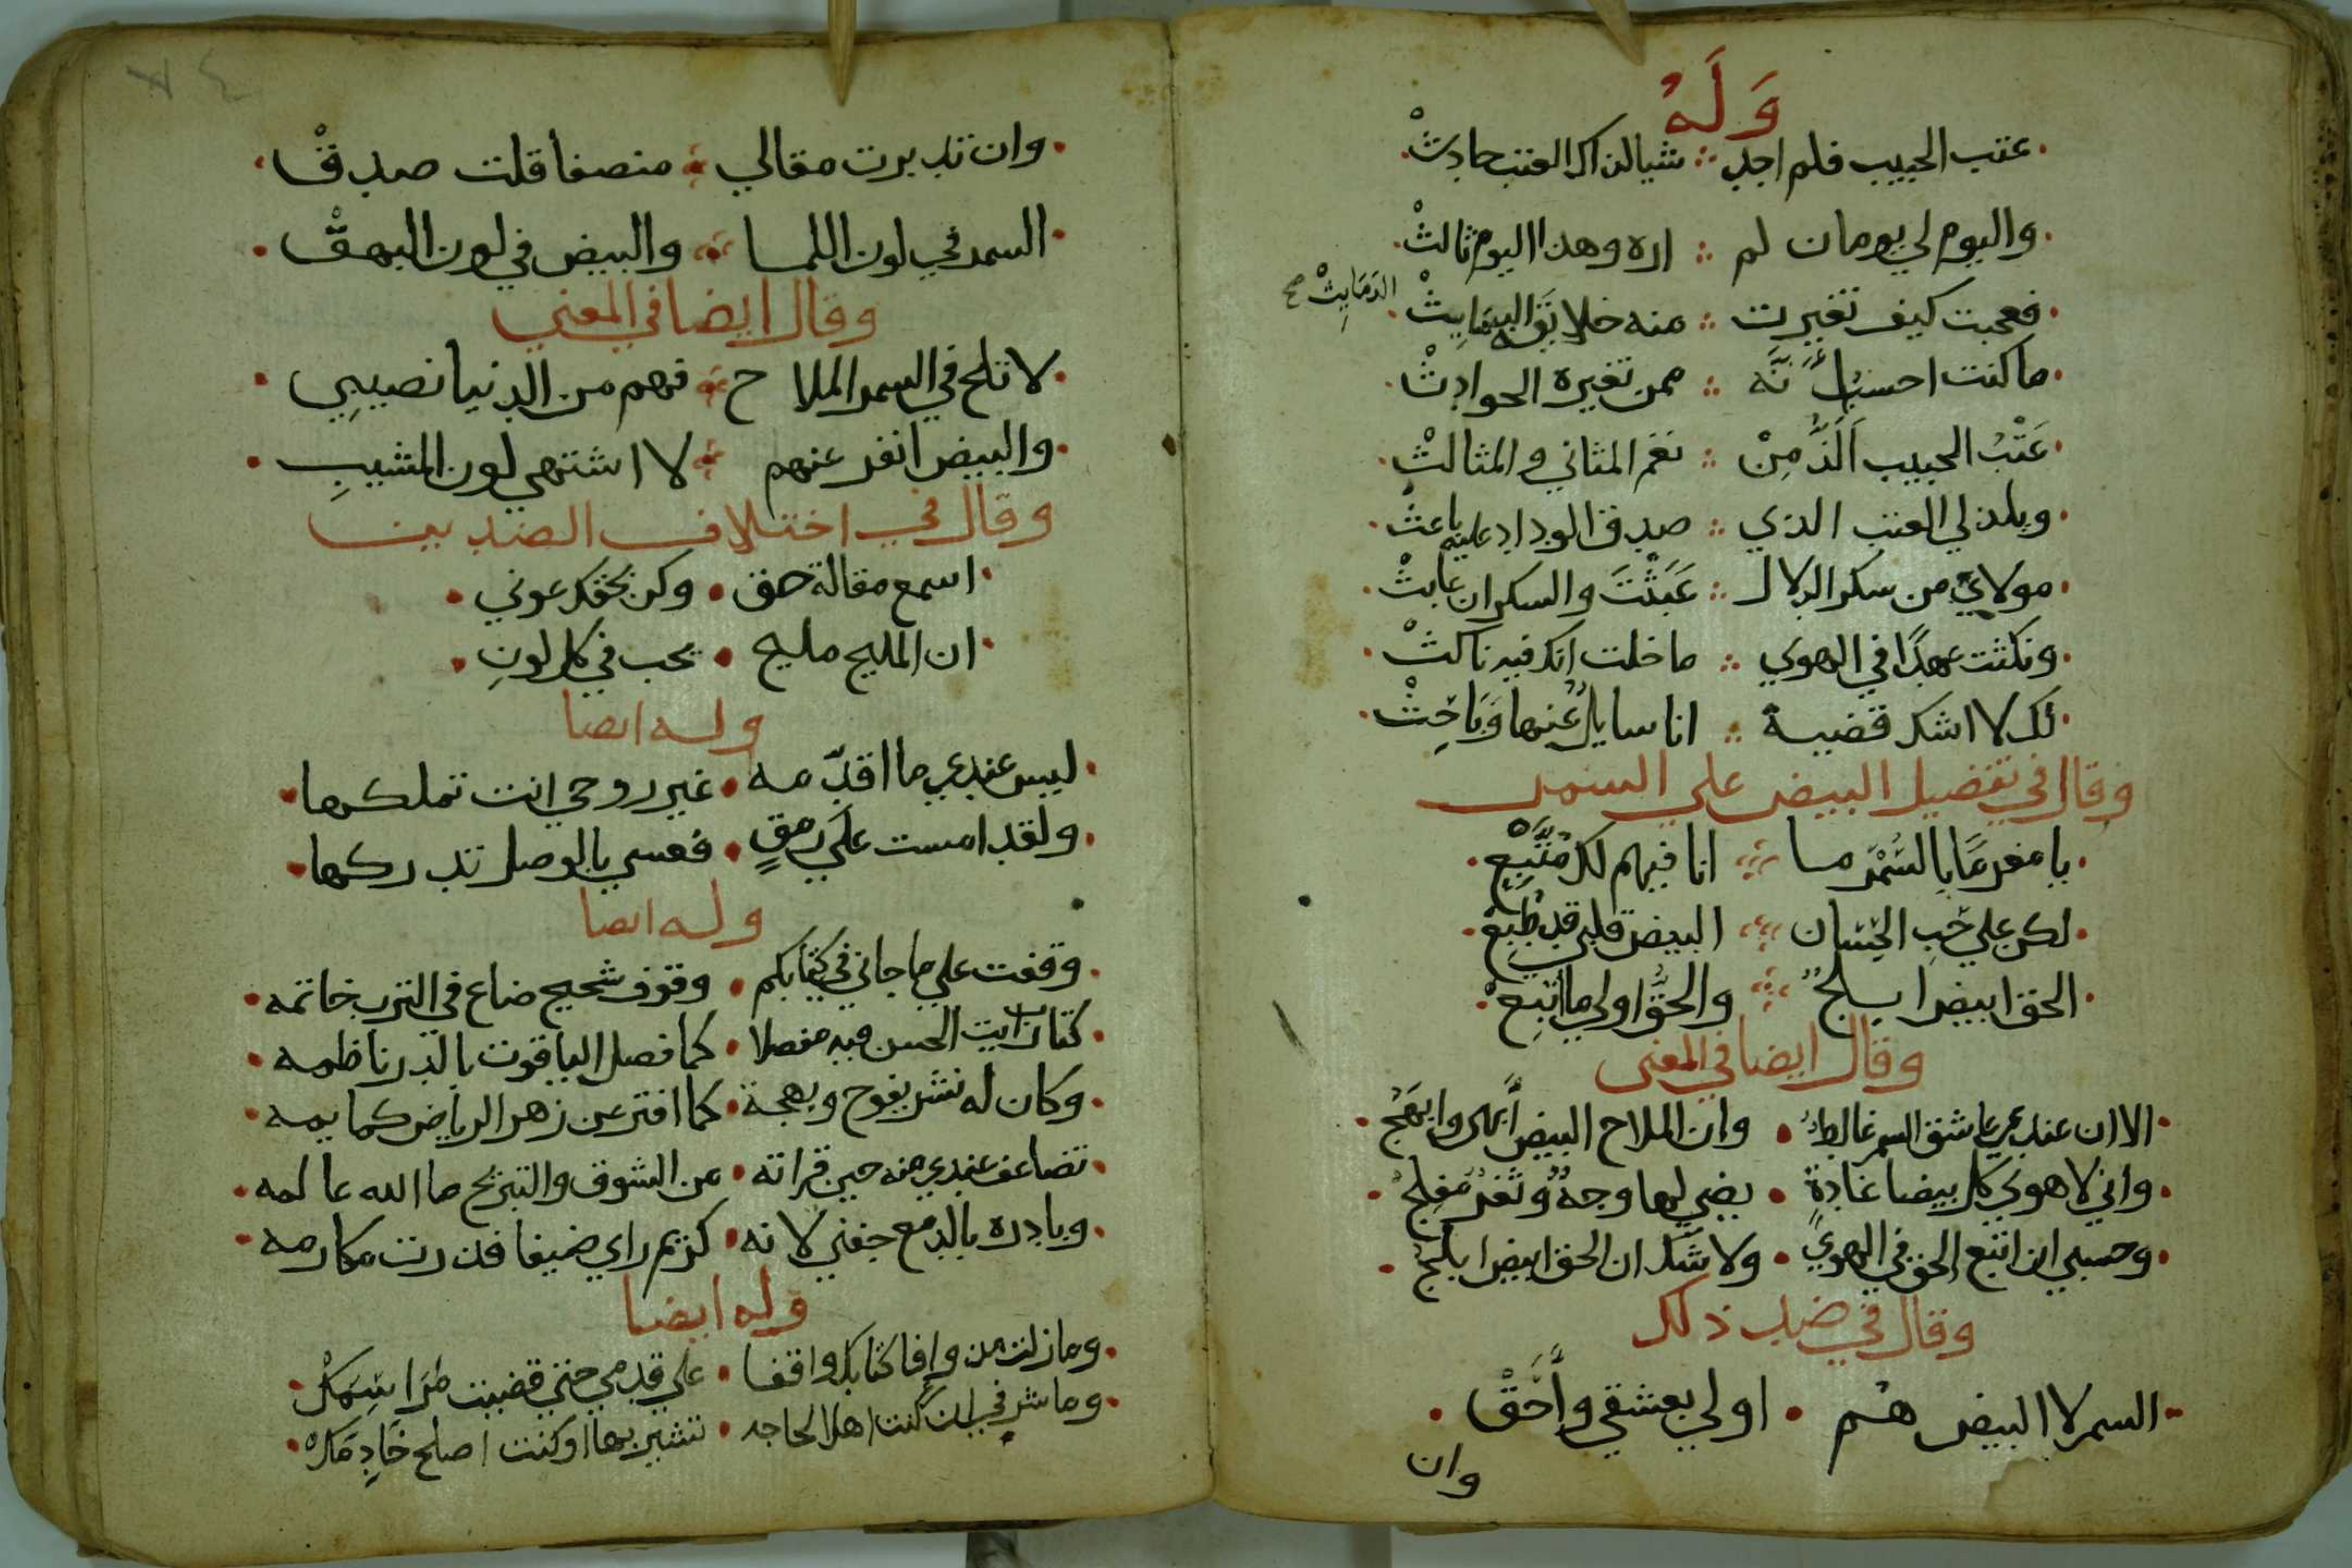 وَلَهُ
عتب الحبيب فلم اجد ∴ شيا لذاك العتب حادثْ
واليوم لي يومان لم ∴ اره وهذا اليوم ثالثْ
فعجبت كيف تغيرت ∴ منه خلايق
الدَمَايِثْ صح
ما كنت احسب أنّه ∴ ممن تغيره الحوادثْ
عَتْبُ الحبيب اَلَذُّ مِنْ ∴ نغم المثاني والمثالثْ
ويلذ لي العتب الذي ∴ صدق الوداد عليه باعثْ
مولايَ من سكر الدلال ∴ عَبَثْتَ والسكران عابثْ
ونكثت عهدًا في الهوي ∴ ما خلت انك فيه ناكثْ
لك لا اشك قضية ∴ انا سايلٌ عنها وَبَاحِثْ
وقال في تفضيل البيض علي السمر
يا مغرمًا بالسُمْر ما ∴ انا فيهم لك مُتَّبِعْ
لكن علي حُبِ الحِسَان ∴ البيض قلبي قد طُبِعْ
الحق ابيض ابلجٌ ∴ والحَقُّ اولي ما اتُبِعْ
وقال ايضا في المعني
الا ان عندي عاشق السمر غالطٌ • وان الملاح البيض أبهى وابهَجُ
واني لاهوي كل بيضا غادةٍ • يضي لها وجهٌ وثغرٌ مفلجُ
وحسبي ان اتبع الحق في الهوي • ولا شك ان الحق ابيض ابلجُ
وقال في ضد ذلك
السمر لا البيض هُم • اولي بعشقي وأحَقْ
وان
٧٤
وان تدبرت مقالي ∴ منصفا قلت صدقْ
السمر في لون اللما ∴ والبيض في لون البهقْ
وقال ايضا في المعني
لا تلح في السمر الملا ح ∴ فهم من الدنيا نصيبِي
والبيض انفر عنهم ∴ لا اشتهي لون المشيبِ
وقال في اختلاف الضدين
اسمع مقالة حق • وكن بحقك عوني
ان المليح مليح • يحب في كل لونِ
وله ايضا
ليس عندي ما اقدّمه • غير روحي انت تملكها
ولقد امست علَي رمقٍ • فعسي بالوصل تدركها
وله ايضا
وقفت علي ما جاني في كتابكم • وقوف شحيح ضاع في الترب خاتمه
كتاب رايت الحسن فيه مفصلا • كما فصل الياقوت بالدر ناظمه
وكان له نشر يفوح وبهجة • كما افتر عن زهر الرياض كمايمه
تضاعف عندي منه حين قراته • من الشوق والتبريح ما الله عالمه
وبادره بالدمع جفني لانه • كريم راي ضيفا فدرت مكارمه
وله ايضا
وما زلت من وافا كتابك واقفا • علي قدمي حتي قضيت مَراسِمَكْ
وما شرفي ان كنت اهلا لحاجه • تشير بها او كنت اصلح خَادِمَكْ